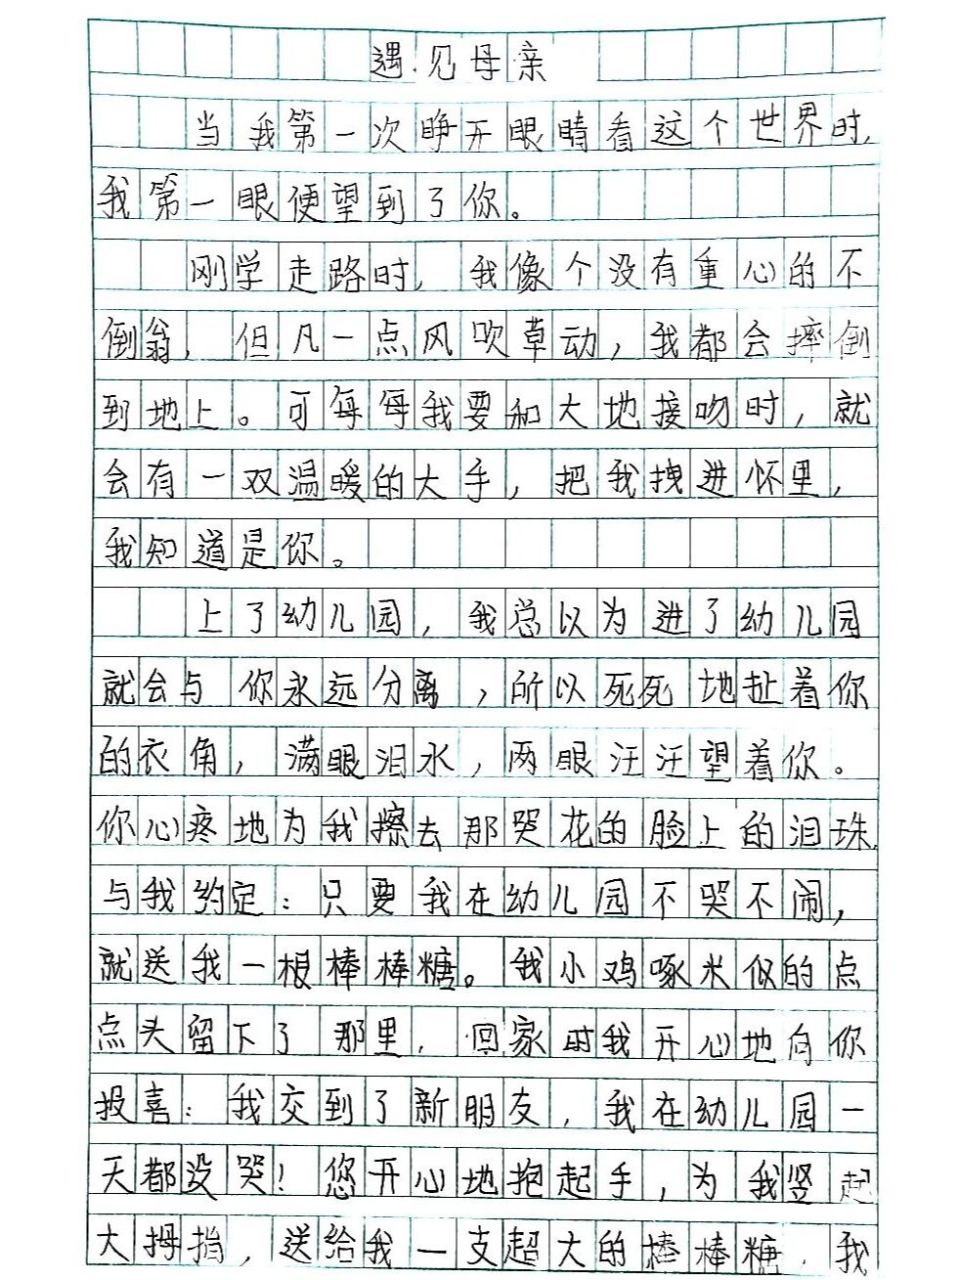 遇见母亲
当我第一次睁开眼睛看这个世界时,
我第一眼便望到了你。
刚学走路时,我像个没有重心的不
倒翁,但凡一点风吹草动,我都会摔倒
到地上。可每每我要和大地接吻时,就
会有一双温暖的大手,把我拽进怀里,
我知道是你。
上了幼儿园,我总以为进了幼儿园
就会与你永远分离,所以死死地扯着你
的衣角,满眼泪水,两眼汪汪望着你。
你心疼地为我擦去那哭花的脸上的泪珠,
与我约定:只要我在幼儿园不哭不闹,
就送我一根棒棒糖。我小鸡啄米似的点
点头留下了那里,回家时我开心地向你
报喜:我交到了新朋友,我在幼儿园一
天都没哭!您开心地抱起手,为我竖起
大拇指,送给我一支超大的棒棒糖,我